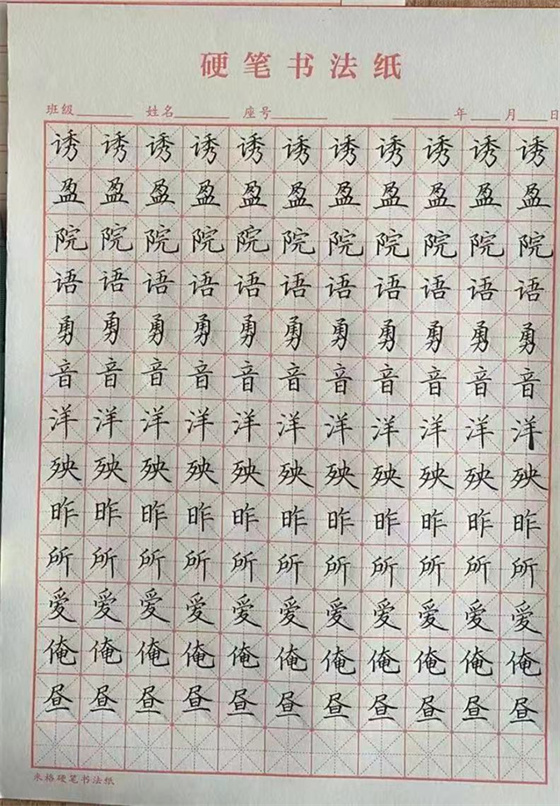 硬笔书法纸
班级 姓名 座号 年 月 日
诱诱诱诱诱诱诱诱诱诱诱
盈盈盈盈盈盈盈盈盈盈盈
院院院院院院院院院院院
语语语语语语语语语语语
勇勇勇勇勇勇勇勇勇勇勇
音音音音音音音音音音音
洋洋洋洋洋洋洋洋洋洋洋
殃殃殃殃殃殃殃殃殃殃殃
昨昨昨昨昨昨昨昨昨昨昨
所所所所所所所所所所所
爱爱爱爱爱爱爱爱爱爱爱
俺俺俺俺俺俺俺俺俺俺俺
昼昼昼昼昼昼昼昼昼昼昼
米格硬笔书法纸